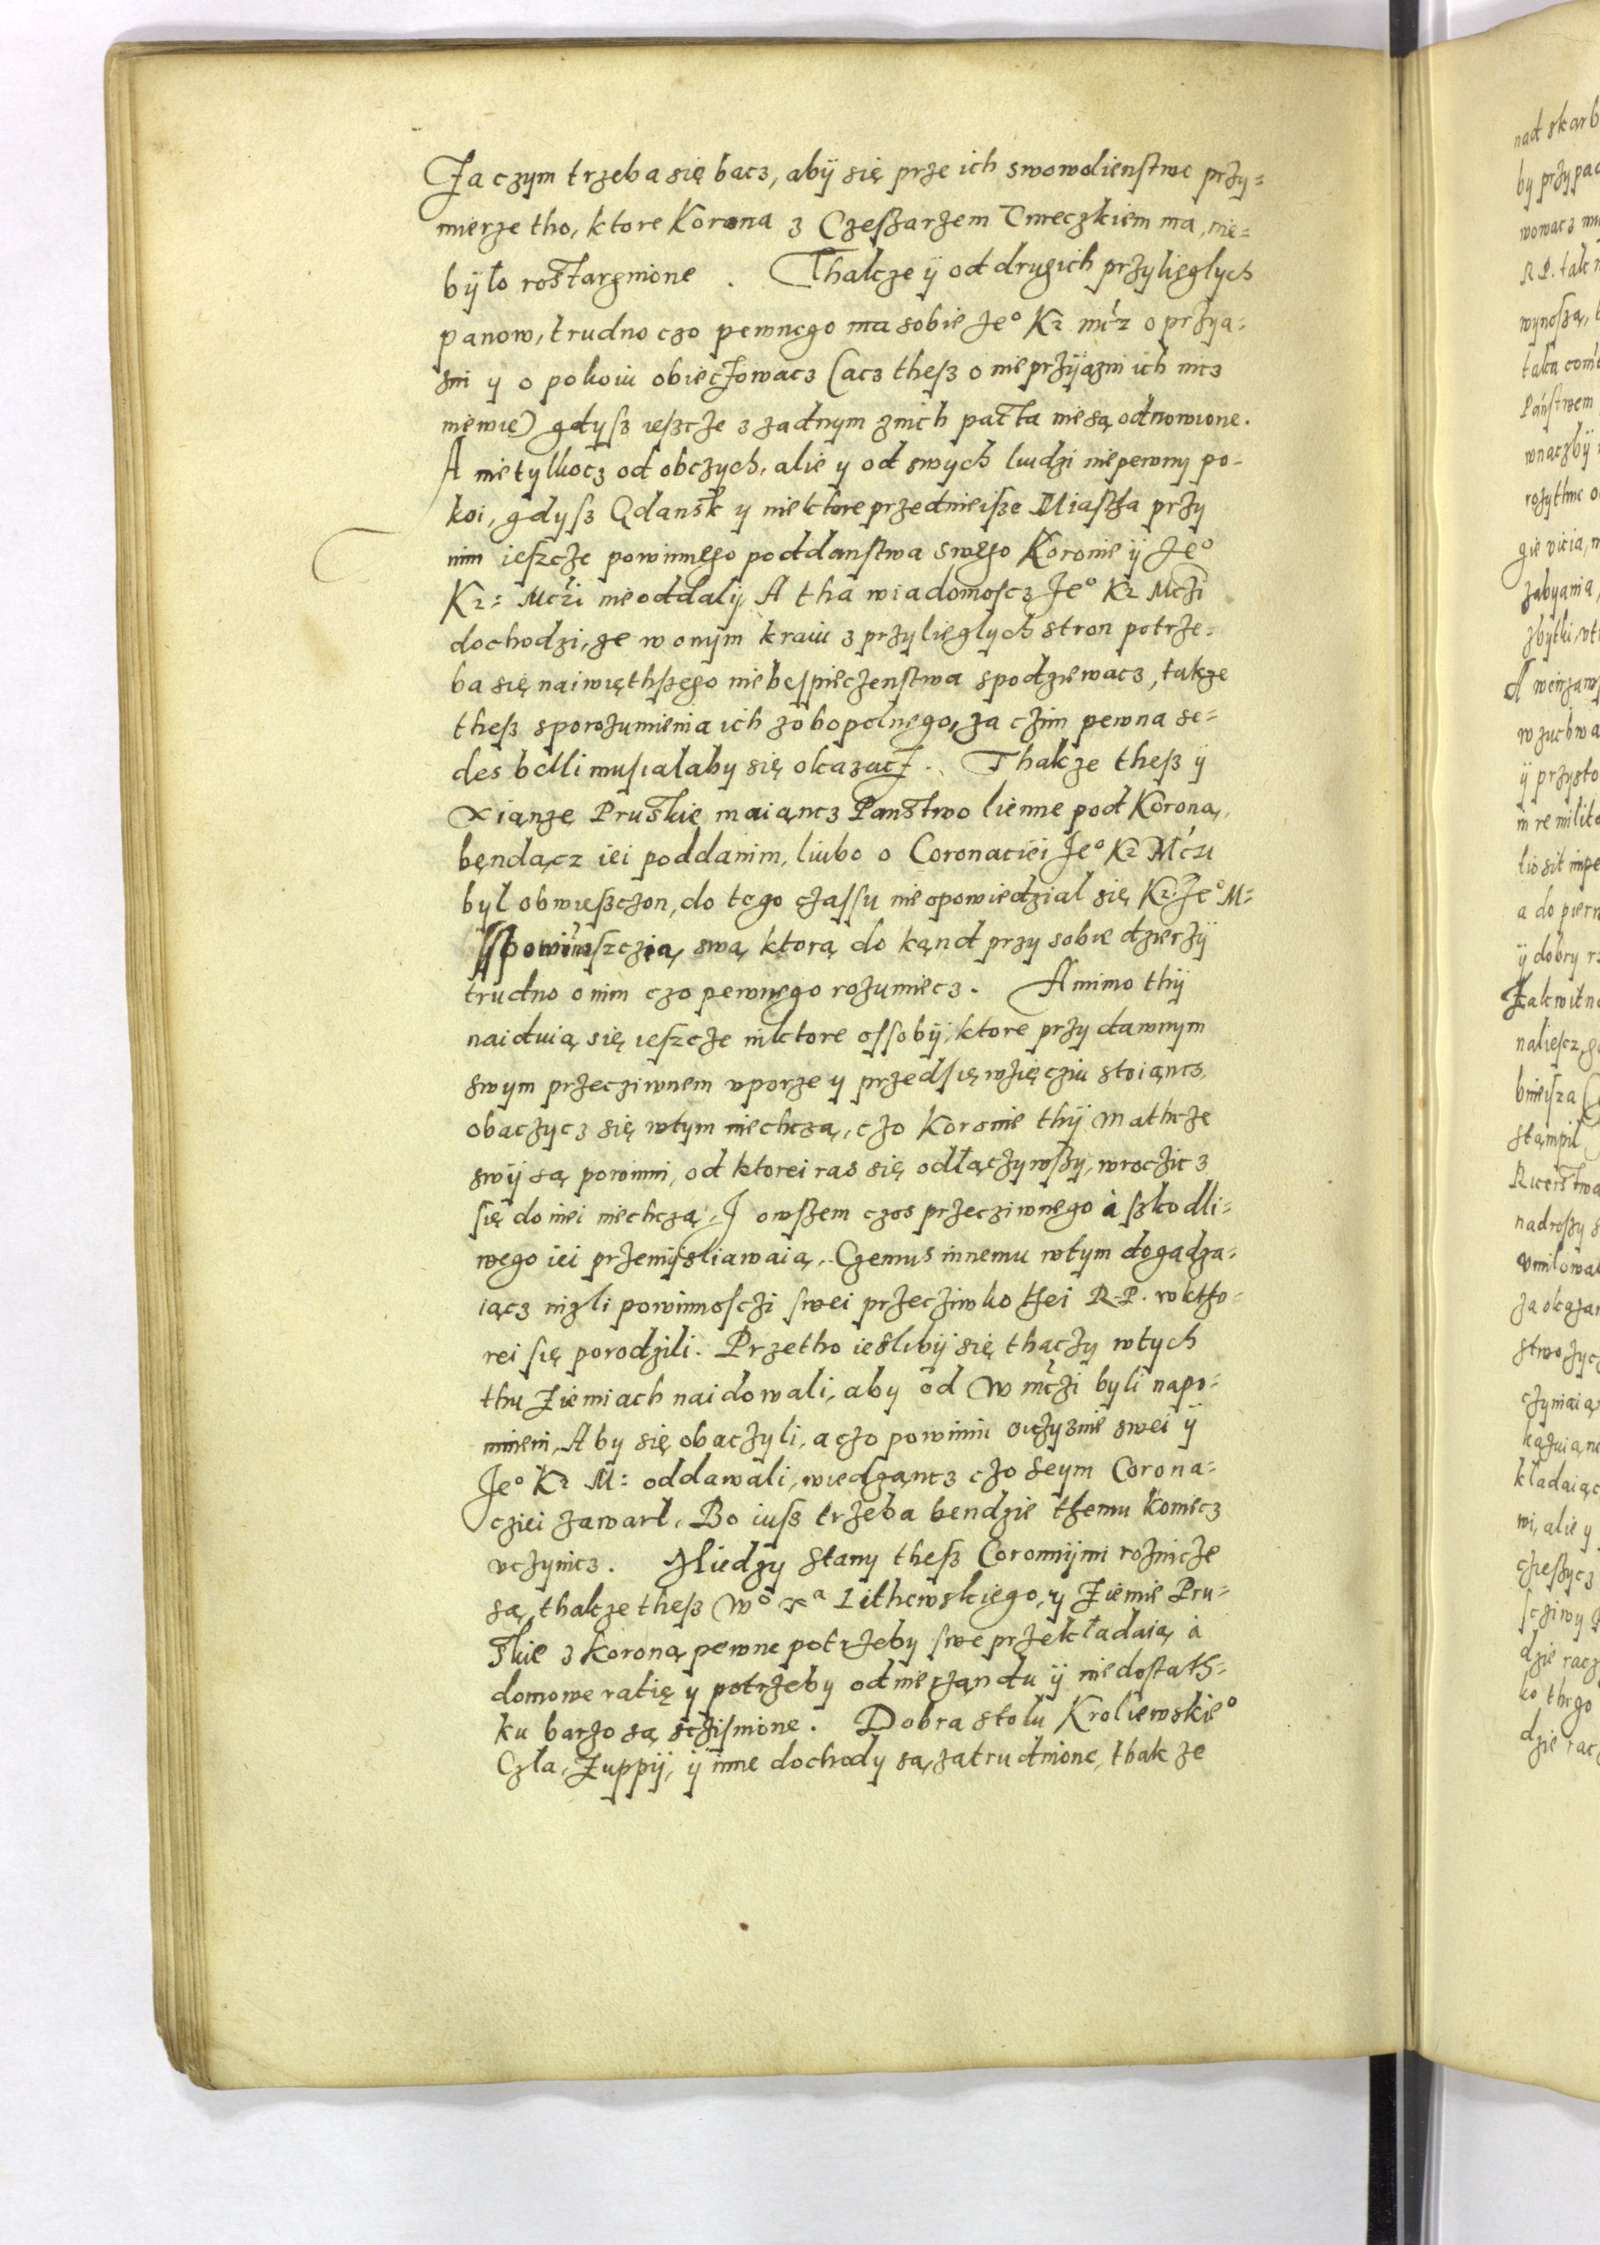 Za czym trzeba się bacz, abÿ się prze ich swowolienstwe przy=
mierze tho, ktore Korona z Czeßarzem Tureczkiem ma, nie=
bÿło rostargnione. Thakze ÿ od drugich przylieglych
panow, trudno czo pewnego ma sobie Je° Kr mcz o przya=
zni y o pokoiu obieczowacz (acz theß o nieprzÿązni ich nicz
niewie) gdysz ieszcze z zadnym znich pacta niesą odnowione.
A nietylkocz od obczych, alie y od swych ludzi niepewny po-
koi, gdysz Gdansk y niektore przednieisze Miasta przy
nim ieszcze powinnego poddanstwa swego Koronie ÿ Je°
Kr: Mczi nieoddalÿ, A tha wiadomoscz Je° Kr Mczi
dochodzi, ze w onym kraiu z przylieglych stron potrze=
ba się naiwięthszego niebespieczenstwa spodziewacz, takze
theß sporozumienia ich zobopolnego, za czim pewna se=
des belli musialaby się okazacz. Thakze theß ÿ
xiąnzę Pruskie maiąncz Panstwo lienne pod Koroną,
bęndącz iei poddanim, liubo o Coronaciei Je° Kr Mczi
byl obwieszczon, do tego czassu nieopowiedzial się Kr. Je° M=
powinszczią swą ktorą do kąnd przy sobie dzierzÿ
trudno onim czo pewnego rozumiecz. A mimo thÿ
naiduią się ieszcze niktore ossobÿ, ktore przy dawnym
swym przecziwnem uporze y przedsięwzięcziu stoiąncz,
obaczycz się wtym niechczą, czo Koronie thÿ Mathcze
swÿ są powinni, od ktorei ras się odłączywszy, wroczicz
się do niei niechczą, J owszem czos przecziwnego à szkodli=
wego iei przemÿsliawaią, Czemus innemu wtym dogadza=
iącz nizli powinnosczi swei przecziwko tei R.P. w ktho=
rei się porodzili. Przetho ieslibÿ się thaczy wtych
thu Ziemiach naidowali, aby od W mczi byli napo=
mnieni, Aby się obaczyli, a czo powinni oiczyznie swei ÿ
Je° Kr M: oddawali, wiedząncz czo Seym Corona=
cziei zawarl. Bo iusz trzeba bendzie themu koniecz
uczynicz. Miedzy Stany theß Coronnÿmi roznicze
są, thakze theß W° xª Lithewskiego, y Ziemie Pru=
skie z Koroną pewne potrzeby swe przekładaią à
domowe ratię y potrzeby od nierząndu ÿ niedostath=
ku barzo są sczisnione. Dobra stolu Kroliewskie°
Czla, Zuppÿ, ÿ inne dochody są zatrudnione, thakze